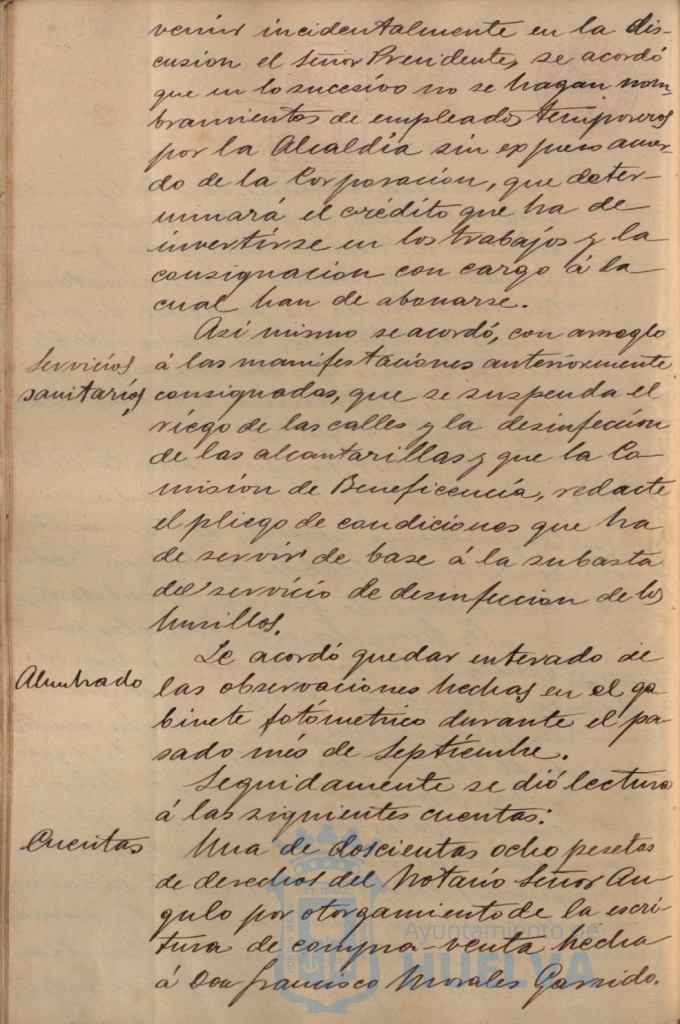 venir incidentalmente en la dis-
cusion el Señor Presidente, se acordó
que en lo sucesivo no se hagan nom-
bramientos de empleados temporeros
por la Alcaldía sin expreso acuer-
do de la Corporacion, que deter-
minará el crédito que ha de
invertirse en los trabajos y la
consignacion con cargo á la
cual han de abonarse.
Servicios
sanitarios
Asi mismo se acordó, con arreglo
á las manifestaciones anteriormente
consignadas, que se suspenda el
riego de las calles y la desinfeccion
de las alcantarillas y que la Co
mision de Beneficencia, redacte
el pliego de condiciones que ha
de servir de base á la subasta
del servicio de desinfeccion de los
husillos.
Alumbrado
Se acordó quedar enterado de
las observaciones hechas en el ga
binete fotómetrico durante el pa-
sado més de Septiembre.
Seguidamente se dió lectura
á las siguientes cuentas:
Cuentas
Una de doscientas ocho pesetas
de derechos del Notario Señor An-
gulo por otorgamiento de la escri-
tura de compra-venta hecha
á Don Francisco Morales Garrido.
Ayuntamiento de
HUELVA